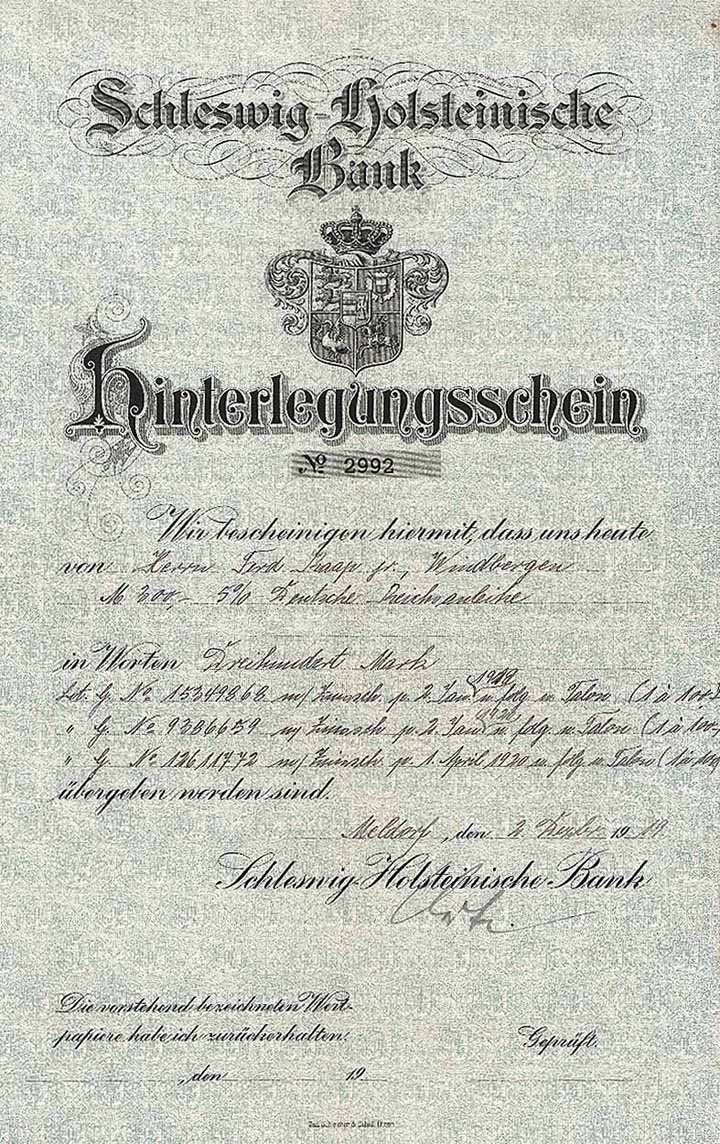 Schleswig-Holsteinische
Bank
Hinterlegungsschein
No 2992
Wir bescheinigen hiermit, dass uns heute
von Herrn Ferd Raap jr., Windbergen
M 300,- 5% Deutsche Reichsanleihe
in Worten Dreihundert Mark
Lit. G. No. 15349868 m/ Zinssch. p. 2. Jan 1920 u. folg u. Talon (1 à 100.-
" G. No. 9386659 m/ Zinssch p. 2. Jan 1920 u. folg u. Talon (1 à 100.-
" G. No. 12611772 m/ Zinssch. p. 1. April 1920 u. folg u. Talon (1 à 100
übergeben worden sind.
Meldorf, den 2. Dezbr. 1919
Schleswig-Holsteinische Bank
Die vorstehend bezeichneten Wert-
papiere habe ich zurückerhalten:
Geprüft.
, den 19